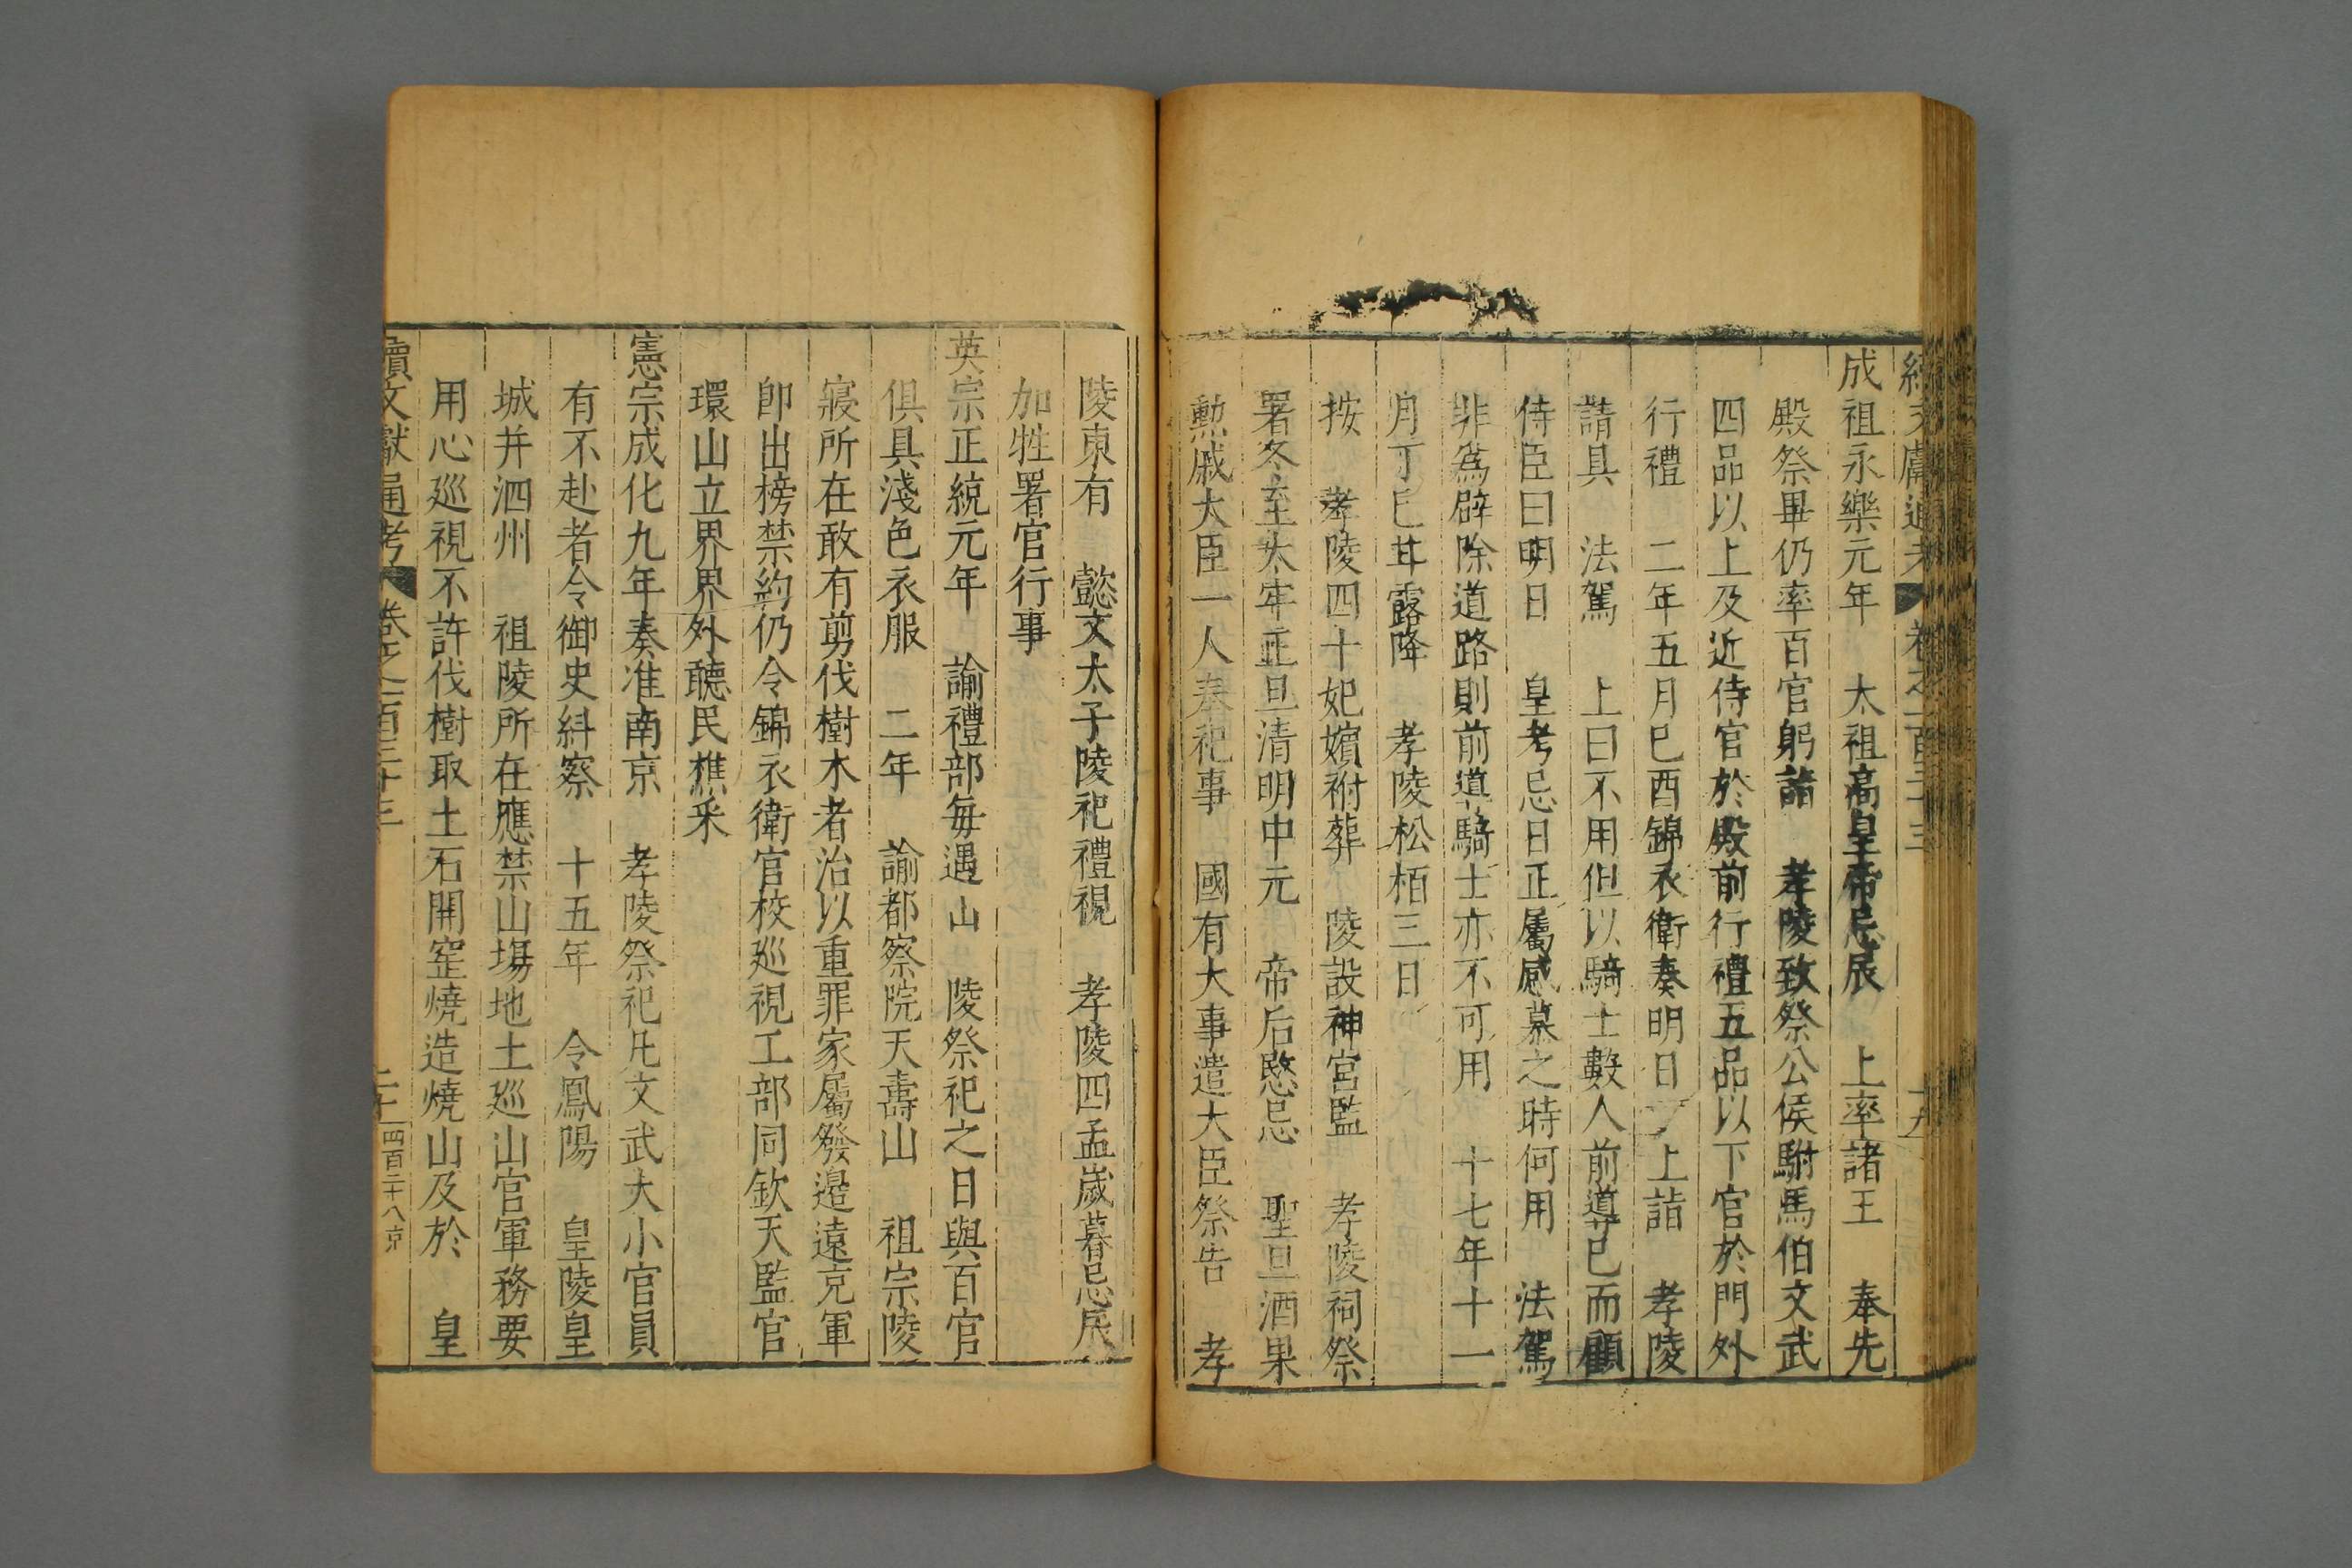 成祖永樂元年　太祖高皇帝忌辰　上率諸王　奉先
殿祭畢仍率百官躬詣　孝陵致祭公侯駙馬伯文武
四品以上及近侍官於殿前行禮五品以下官於門外
行禮　二年五月巳酉錦衣衛奏明日　上詣　孝陵
請具　法駕　上曰不用但以騎士數人前導巳而顧
侍臣曰明日　皇考忌日正屬感慕之時何用　法駕
非為辟除道路則前導騎士亦不可用　十七年十一
月丁巳甘露降　孝陵松栢三日
按　孝陵四十妃嬪祔葬　陵設神宮監　孝陵祠祭
署冬至太牢正旦清明中元　帝后愍忌　聖旦酒果
勲戚大臣一人奉祀事　國有大事遣大臣祭告　孝
陵東有　懿文太子陵祀禮視　孝陵四孟歲暮忌辰
加牲署官行事
英宗正統元年　諭禮部每遇山　陵祭祀之日與百官
俱具淺色衣服　二年　諭都察院天壽山　祖宗陵
寢所在敢有剪伐樹木者治以重罪家屬發邉遠充軍
卽出榜禁約仍令錦衣衛官校廵視工部同欽天監官
環山立界界外聽民樵采
憲宗成化九年奏准南京　孝陵祭祀凡文武大小官員
有不赴者令御史糾察　十五年　令鳳陽　皇陵皇
城并泗州　祖陵所在應禁山塲地土廵山官軍務要
用心廵視不許伐樹取土石開窰燒造燒山及於　皇
續文獻通考　卷之一百三十三